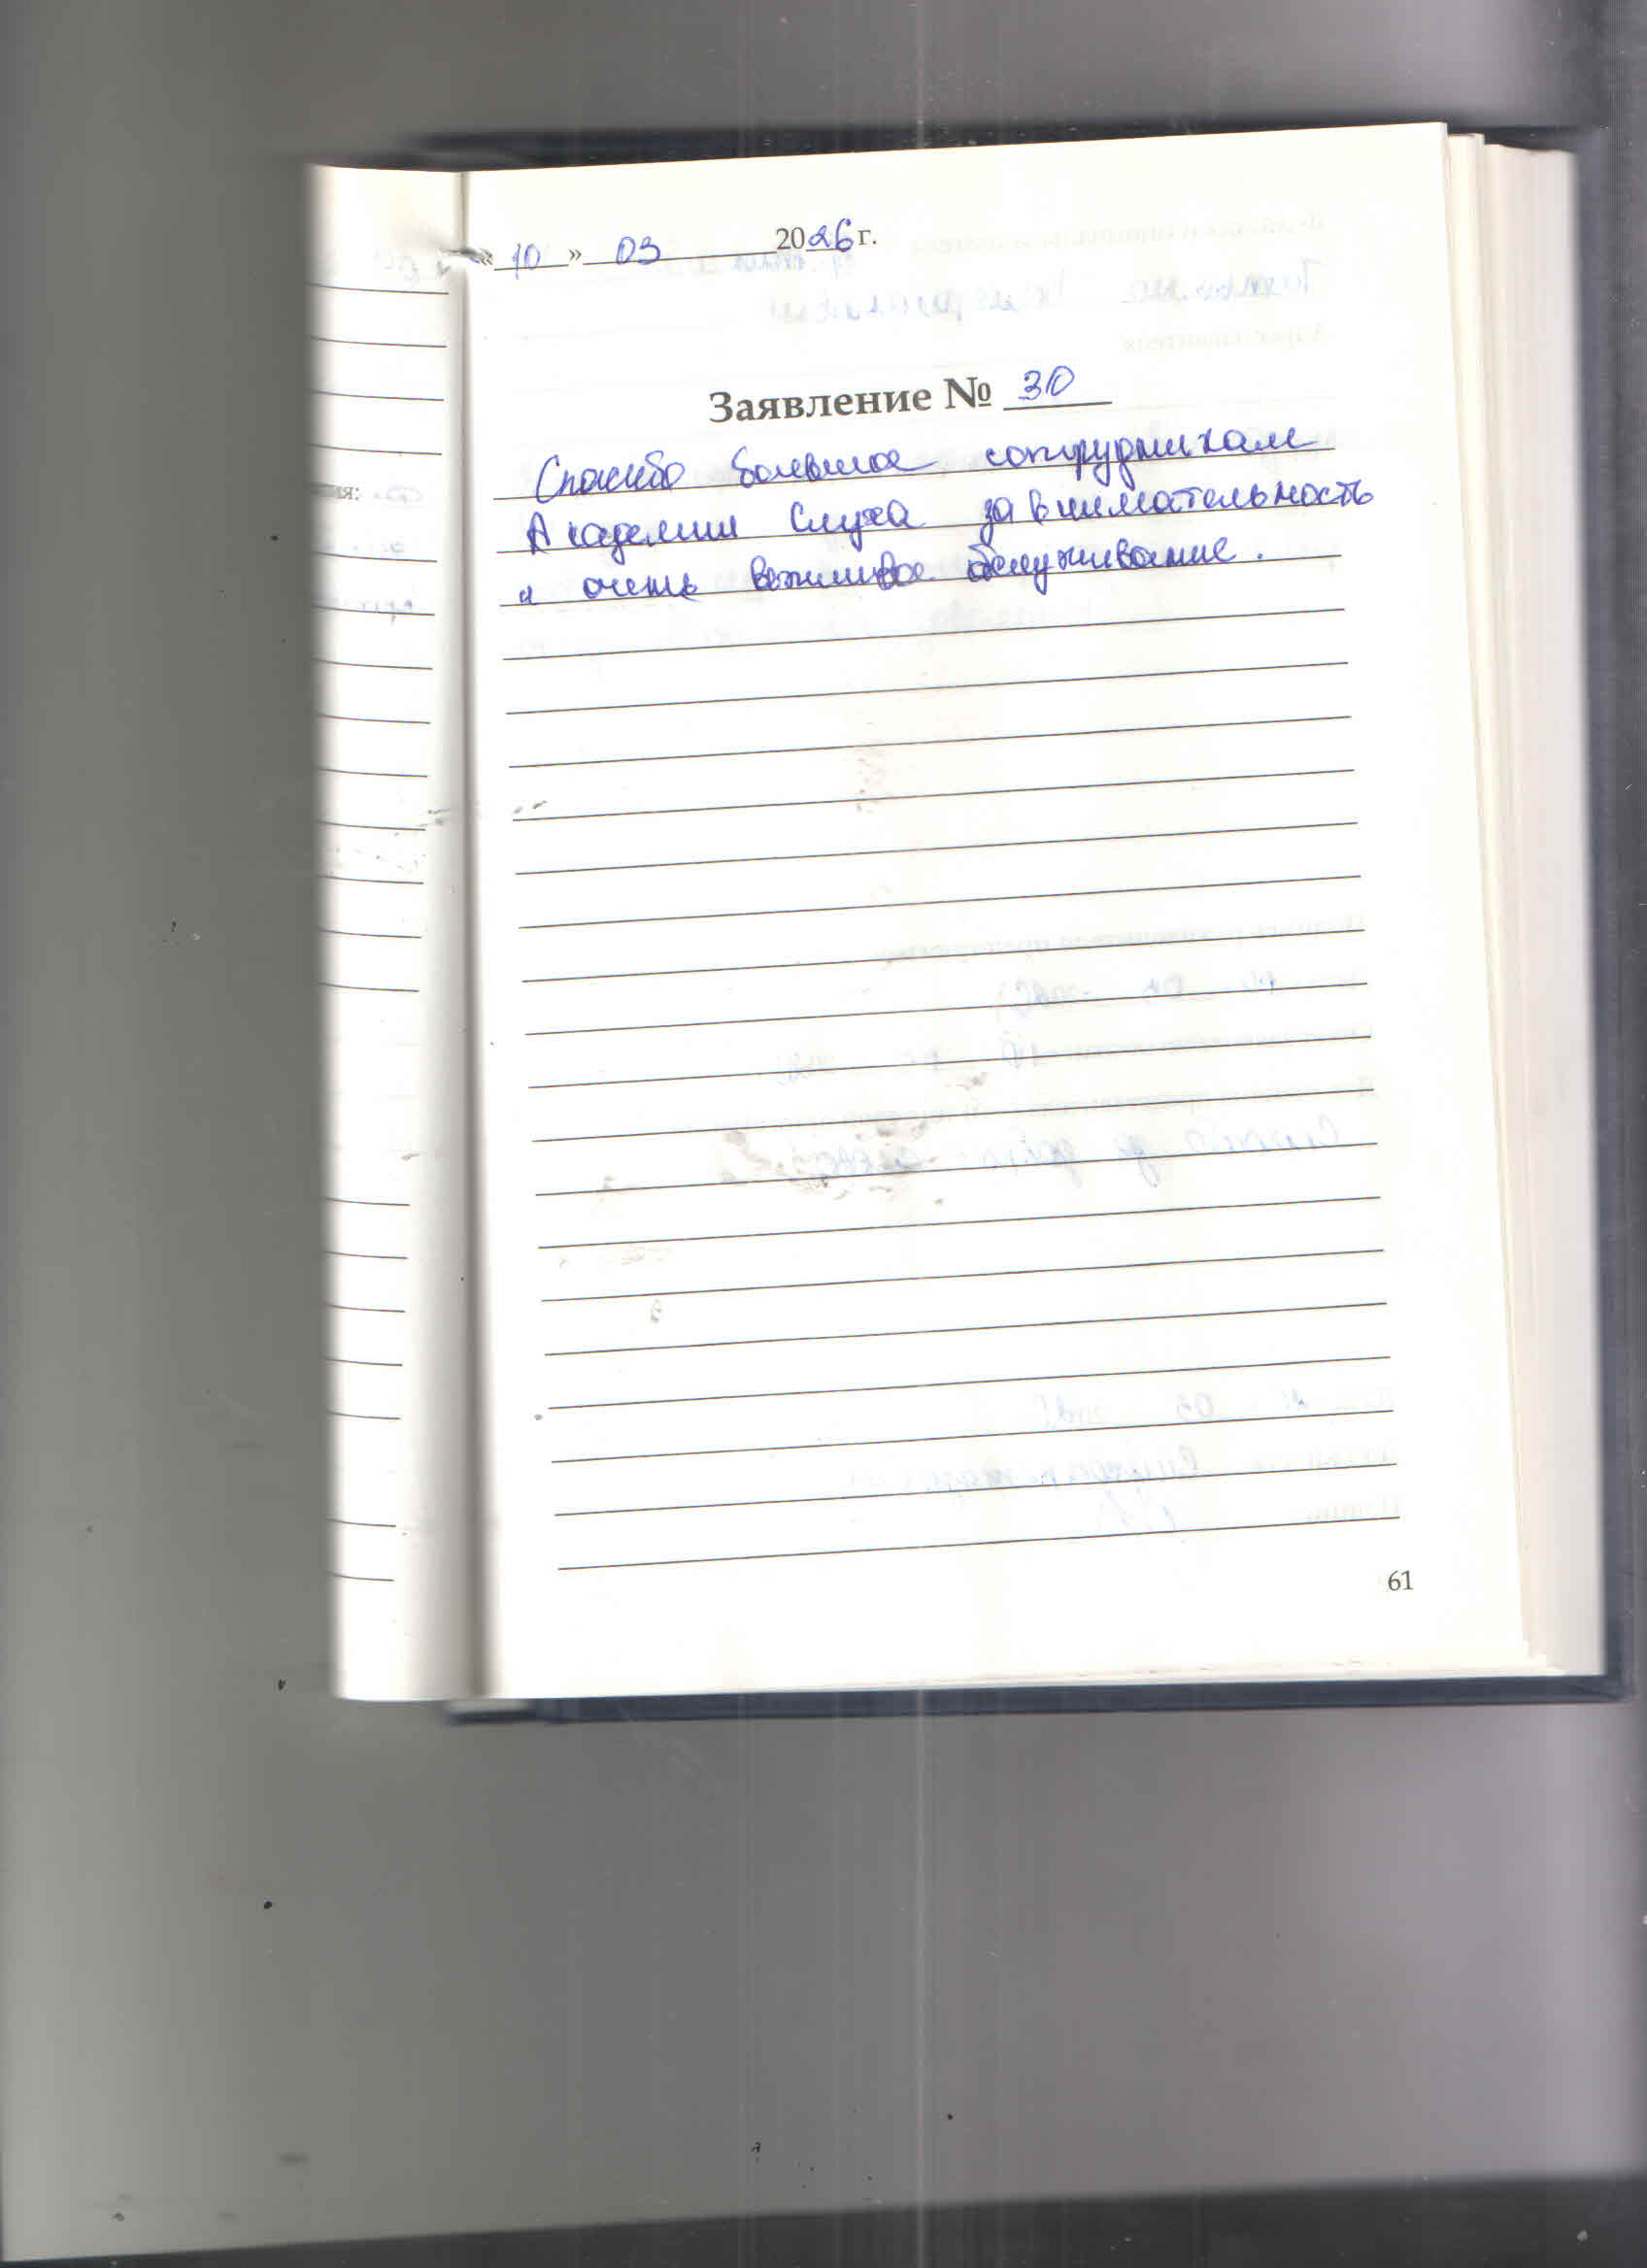 «10» 03 2026 г.
Заявление № 30
Спасибо большое сотрудникам
Академии Слуха за внимательность
и очень вежливое обслуживание.
ия:
61